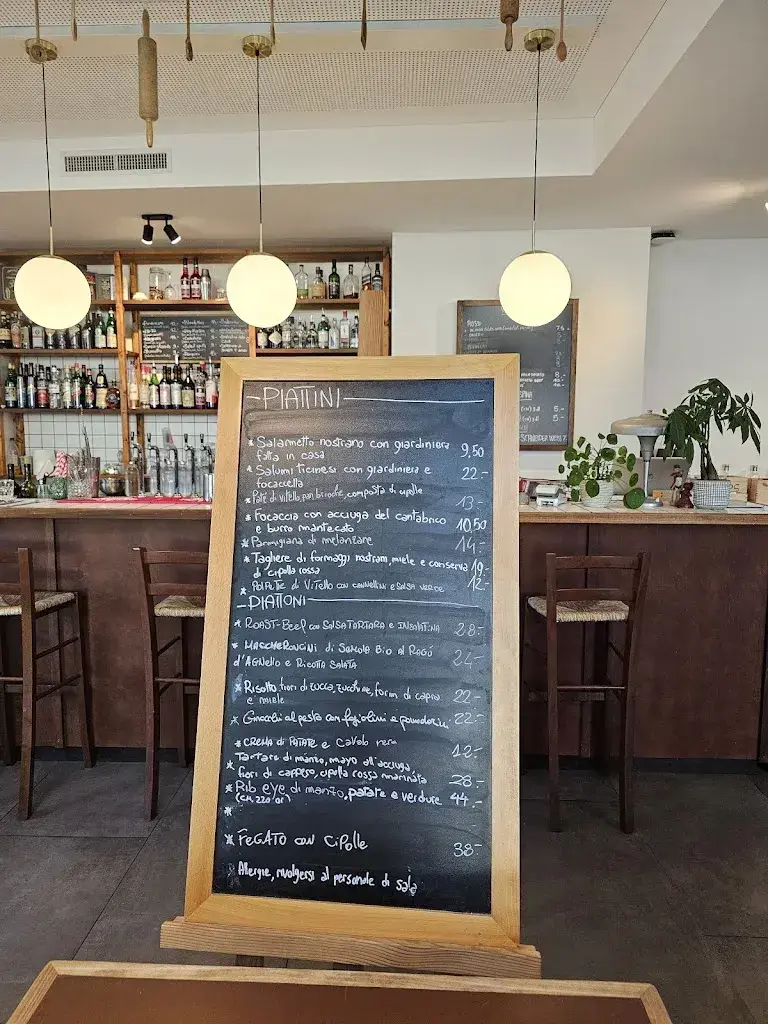 PIATTINI
* Salametto nostrano con giardiniera 9,50
fatta in casa
* Salumi ticinesi con giardiniera e 22.-
focaccella
* Patè di vitello, pan brioche, composta di cipolle 13.-
* Focaccia con acciuga del cantabrico 10,50
e burro mantecato
* Parmigiana di melanzane 14.-
* Tagliere di formaggi nostrani, miele e conserva 19.-
di cipolla rossa
* POLPETTE di VITELLO con CANNELLINI e SALSA VERDE 12.-
PIATTONI
* ROAST-BEEF con SALSA TARTARA e INSALATINA 28.-
* MACCHERONCINI di SEMOLA BIO al RAGÙ 24.-
d'AGNELLO e RICOTTA SALATA
* Risotto, fiori di zucca, zucchine, form. di capra 22.-
e miele
* Gnocchi al pesto con fagiolini e pomodorini 22.-
* CREMA di PATATE e CAVOLO nero 12.-
Tartare di manzo, mayo all'acciuga,
* fiori di cappero, cipolla rossa marinata 28.-
* Rib eye di manzo, patate e verdure 44.-
(CH, 220 gr)
*
* FEGATO con Cipolle 38.-
Allergie, rivolgersi al personale di sala